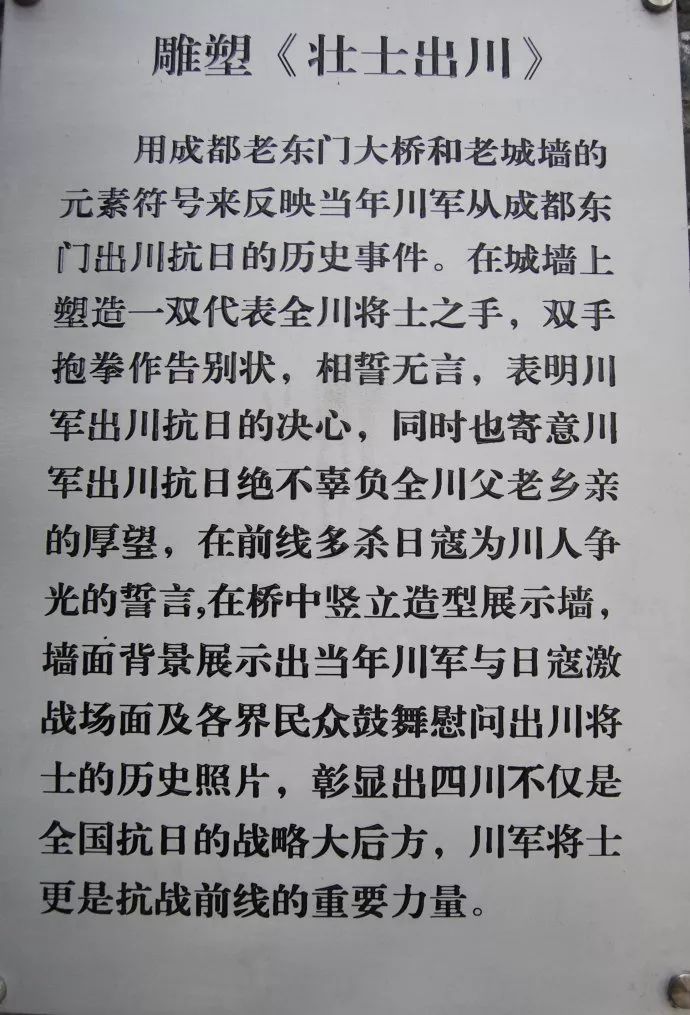 雕塑《壮士出川》
用成都老东门大桥和老城墙的
元素符号来反映当年川军从成都东
门出川抗日的历史事件。在城墙上
塑造一双代表全川将士之手，双手
抱拳作告别状，相誓无言，表明川
军出川抗日的决心，同时也寄意川
军出川抗日绝不辜负全川父老乡亲
的厚望，在前线多杀日寇为川人争
光的誓言,在桥中竖立造型展示墙，
墙面背景展示出当年川军与日寇激
战场面及各界民众鼓舞慰问出川将
士的历史照片，彰显出四川不仅是
全国抗日的战略大后方，川军将士
更是抗战前线的重要力量。